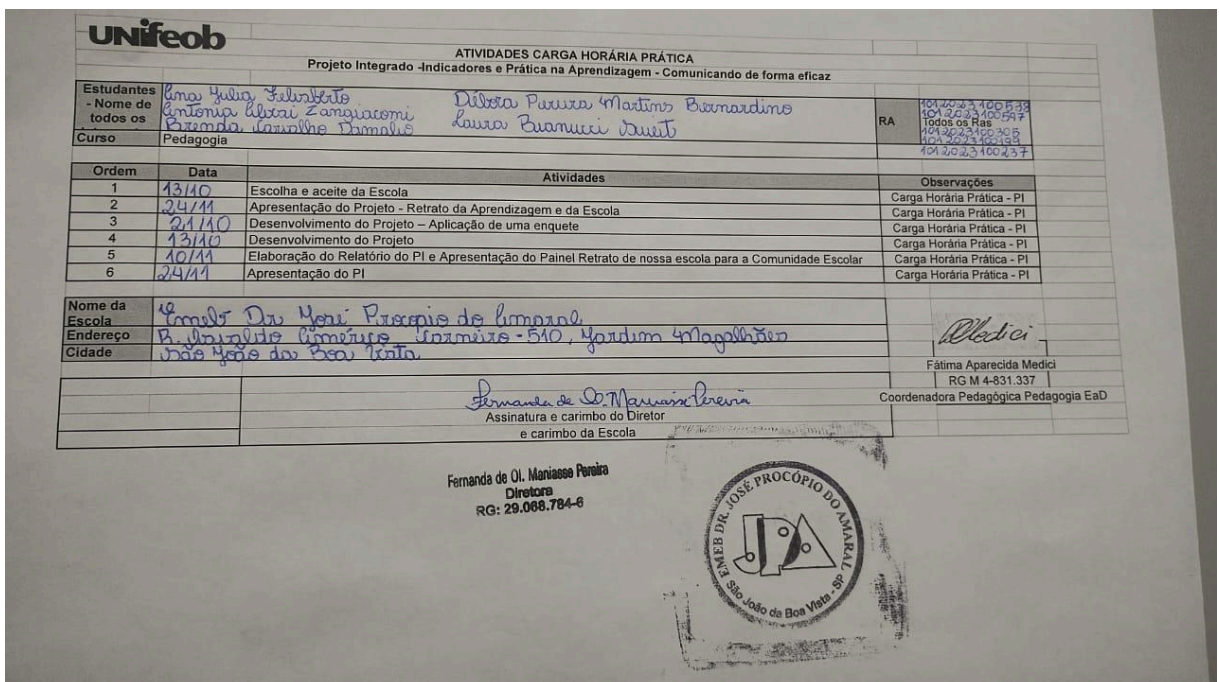 UNifeob
ATIVIDADES CARGA HORÁRIA PRÁTICA
Projeto Integrado -Indicadores e Prática na Aprendizagem - Comunicando de forma eficaz
Estudantes - Nome de todos os
Ana Julia Felisberto Débora Pereira Martins Bernardino
Antonia Zangiacomi Laura
Brenda Carvalho Damalio
RA
1012023100538
1012023100597
Todos os Ras
1012023100305
1012023100199
1012023100237
Curso Pedagogia
Ordem Data Atividades Observações
1 13/10 Escolha e aceite da Escola Carga Horária Prática - PI
2 24/11 Apresentação do Projeto - Retrato da Aprendizagem e da Escola Carga Horária Prática - PI
3 21/10 Desenvolvimento do Projeto – Aplicação de uma enquete Carga Horária Prática - PI
4 13/10 Desenvolvimento do Projeto Carga Horária Prática - PI
5 10/11 Elaboração do Relatório do PI e Apresentação do Painel Retrato de nossa escola para a Comunidade Escolar Carga Horária Prática - PI
6 24/11 Apresentação do PI Carga Horária Prática - PI
Nome da Escola Emeb Dr José Procopio do Amaral
Endereço R. Osvaldo Américo Carneiro - 510, Jardim Magalhães
Cidade São João da Boa Vista
Medici
Fátima Aparecida Medici
RG M 4-831.337
Coordenadora Pedagógica Pedagogia EaD
Fernanda de O. Maniasse Pereira
Assinatura e carimbo do Diretor
e carimbo da Escola
Fernanda de Ol. Maniasse Pereira
Diretora
RG: 29.068.784-6
EMEB DR. JOSÉ PROCÓPIO DO AMARAL
JPA
São João da Boa Vista - SP